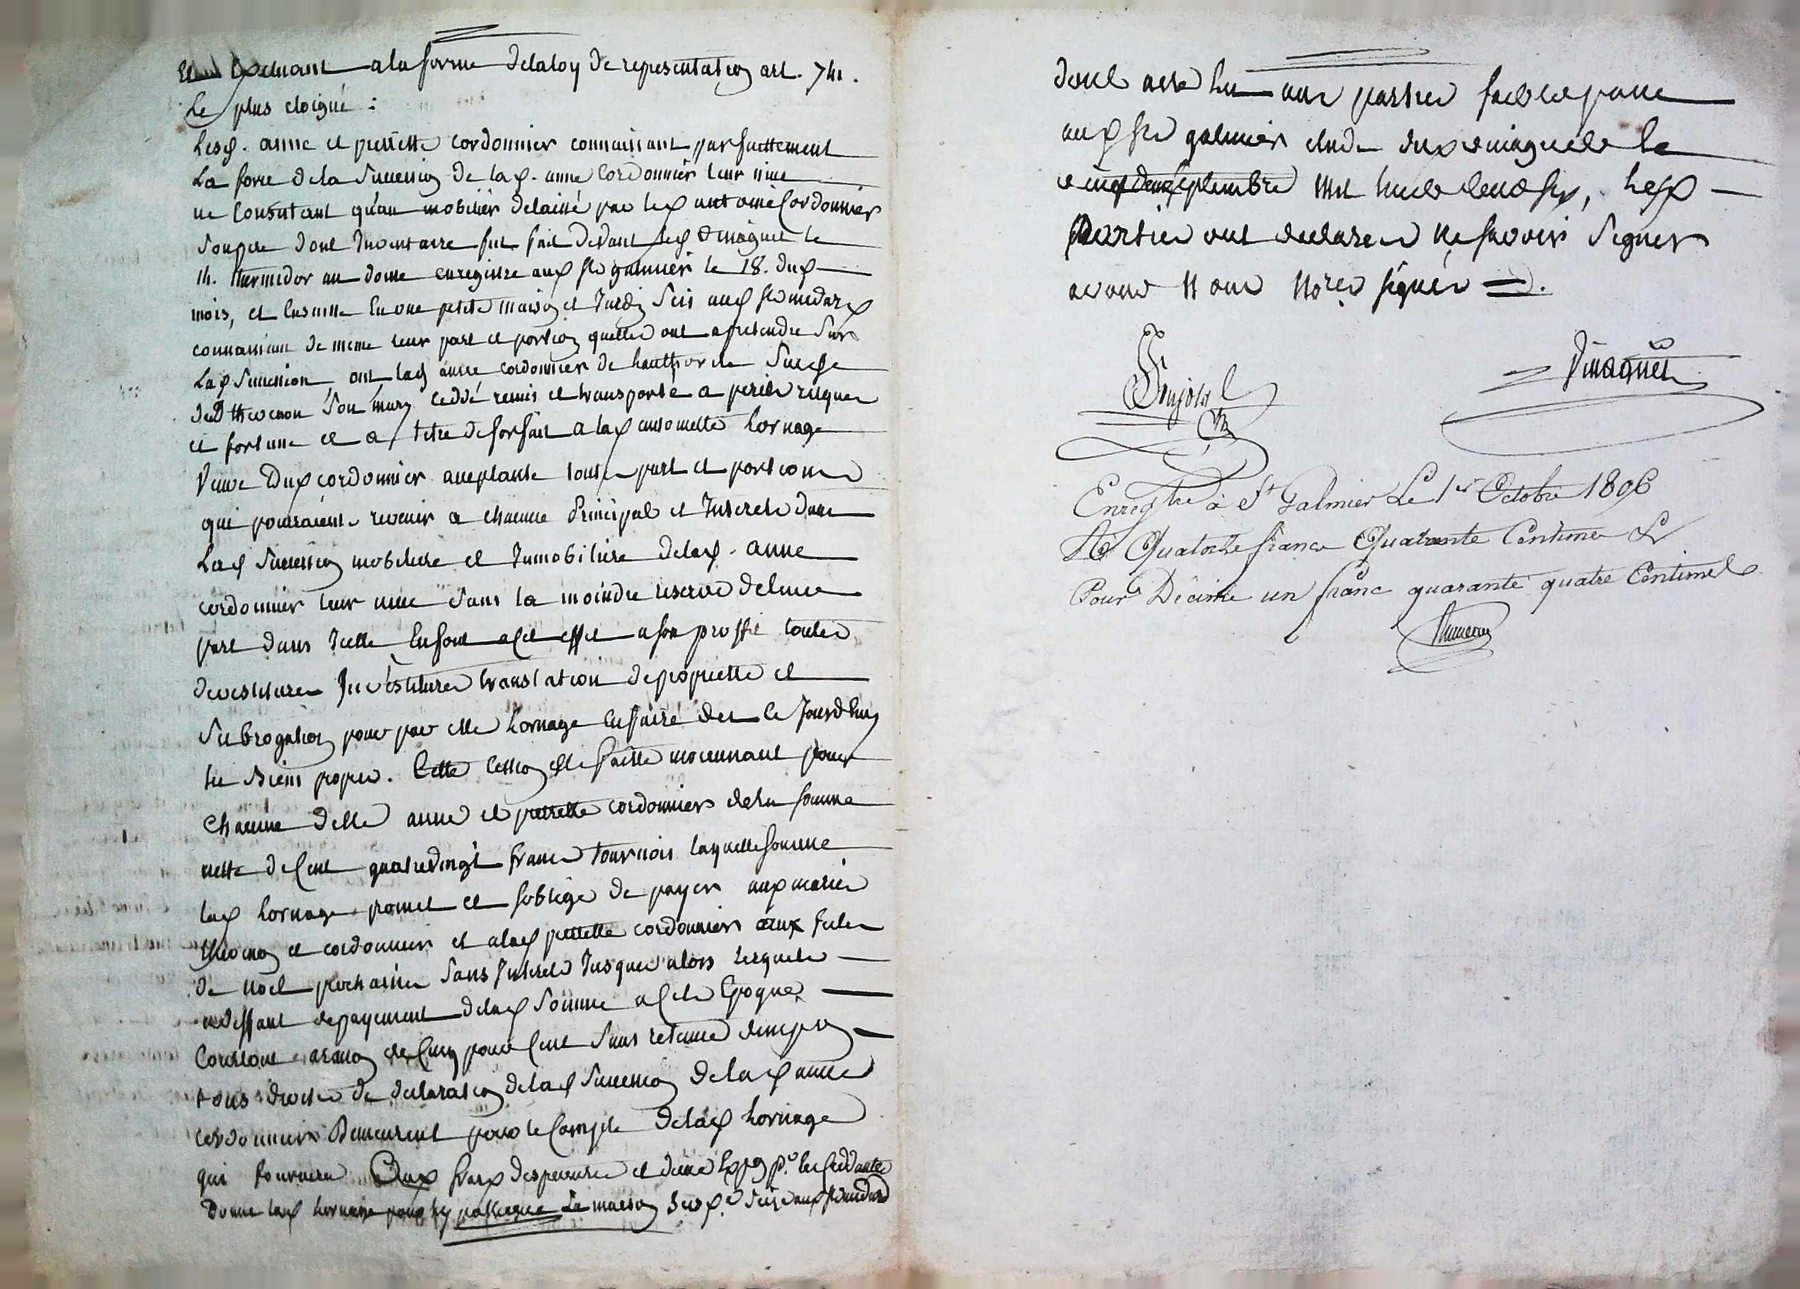 Excluant a la forme de la loy de representation art. 741.
Le plus eloigné :
Lesd. anne et pierrette cordonnier connaissant parfaittement
La force de la Succession de lad. anne Cordonnier leur niece
ne Consistant qu'au mobilier delaissé par led antoine Cordonnier
son pere dont Inventaire fut fait devant led Vinaguet le
14. thermidor an douze enregistre aud st galmier le 18. dud
mois, et Ensuitte En une petite Maison et Jardin Sis aud st medard
connaissant de meme leur part et portion quelles ont a pretendre Sur
Lad Succession, ont lad anne cordonnier de lauthorité Susd de
dud thevenon Son mary Ceddé remis et transporté a perils risques
et fortune et a titre de forfait a lad antoinette hornage
Veuve Dud cordonnier acceptante toutes part et portions
qui pourraient revenir a chacune Principal et Interets dans
Lad Succession mobiliere et Immobiliere delad. anne
cordonnier leur niece Sans la moindre reserve de leur
part dans Icelle Enfont a Cet effet a son proffit toutes
devestitures Investitures translation de propriette et
Subrogation pour par elle hornage En faire des ce Jourdhuy
Ses Biens propres. Cette Cession Est faitte moiennant pour
Chacune delles anne et pierrette cordonnier dela somme
nette de Cent quatrevingt francs tournois laquelle somme
lad hornage promet et soblige de payer aux mariés
thevenon et cordonnier et alad pierrette cordonnier aux fetes
de noel prochaine Sans Interets Jusques alors lesquels
a deffaut de payement delad Somme a Cette Epoque,
Courront a raison de Cinq pour Cent Sans retenue
tous droits de declaration delad Succession de lad anne
cordonnier Demeurent pour le Compte delad hornage
qui fournira aux frais des presentes et dune Exp.on p.r les ceddantes
Donne lad hornage pour hypotheque La maison Susd.e Sise aud st medard
dont acte lu aux parties fait et passé
aud st galmier etude dud vinaguet le
vingt deux septembre mil huit cent six, lesd
Parties ont declarees Ne Savoir Signer
avons Nous No.res signés
Pujol
Vinaguet
Enreg.tre à S.t Galmier Le 1.er Octobre 1806
R.é Quatorze francs Quarante Centimes &
Pour Décime un franc quarante quatre Centimes